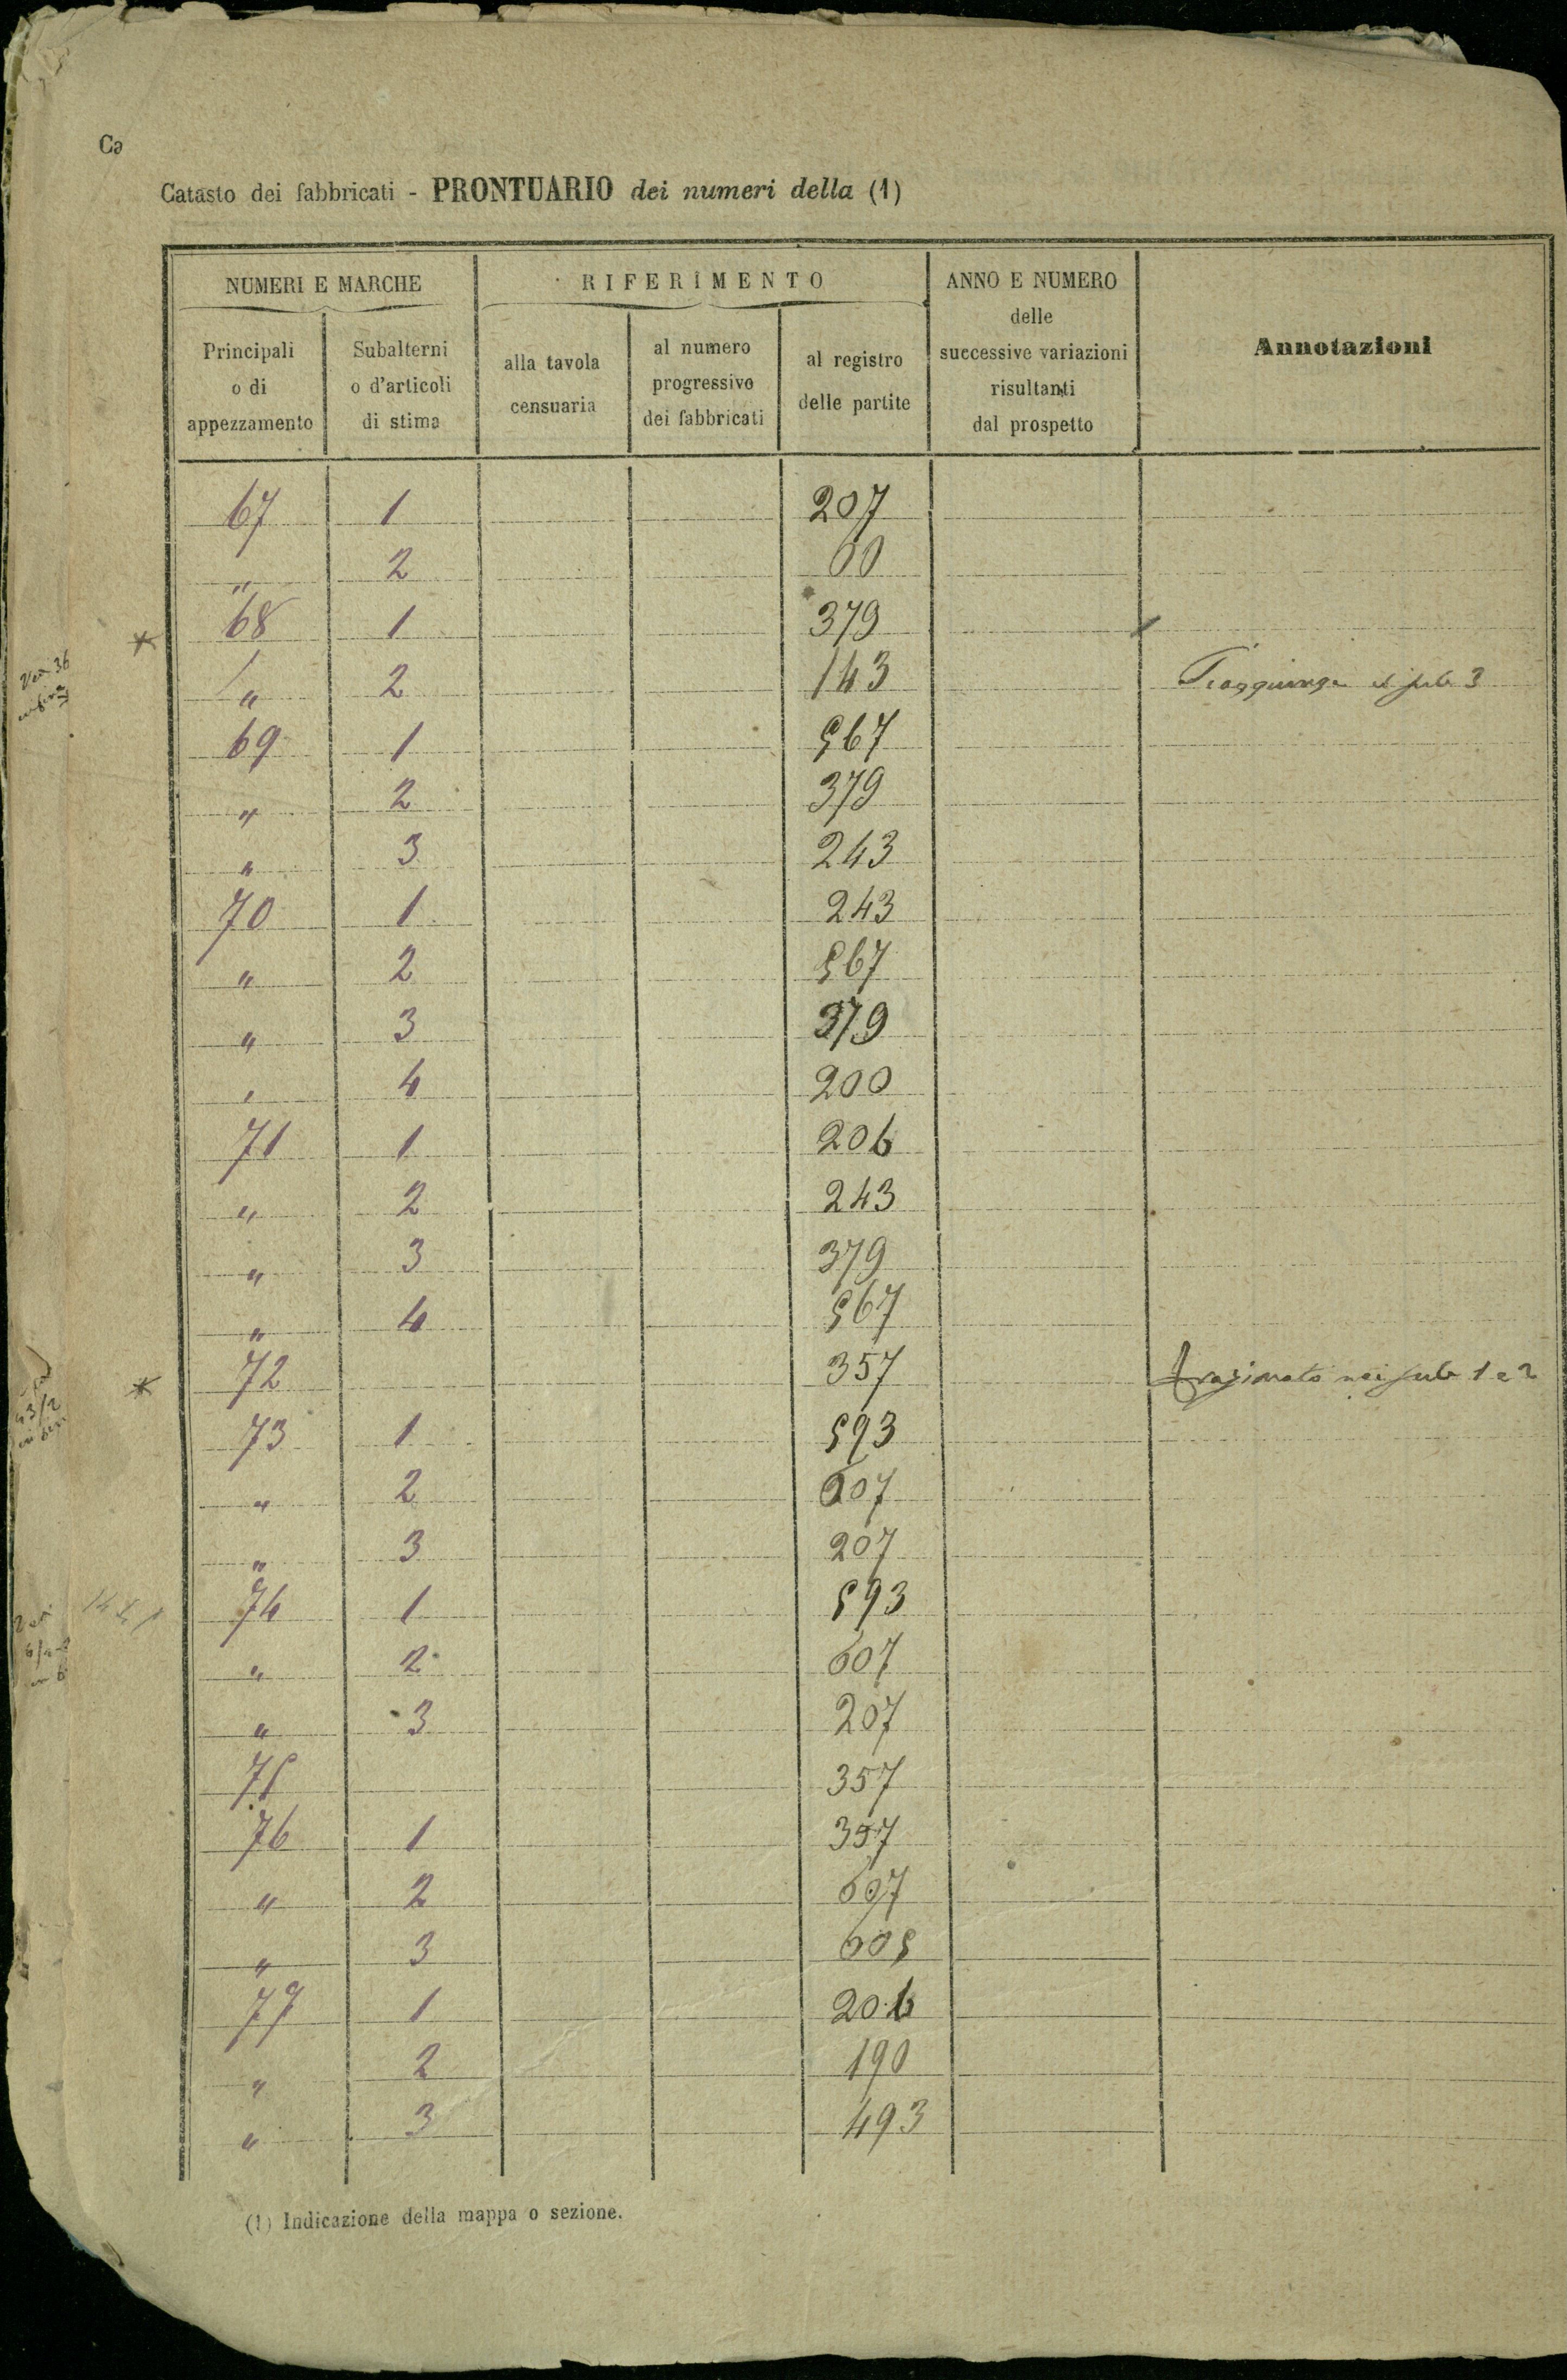 Ca
Catasto dei fabbricati - PRONTUARIO dei numeri della (1)
NUMERI E MARCHE
RIFERIMENTO
ANNO E NUMERO
delle
successive variazioni
risultanti
dal prospetto
Annotazioni
Principali
o di
appezzamento
Subalterni
o d'articoli
di stima
alla tavola
censuaria
al numero
progressivo
dei fabbricati
al registro
delle partite
67 1 207
" 2 00
* 68 1 379
" 2 143 si aggiunge il sub 3
69 1 567
" 2 379
" 3 243
70 1 243
" 2 567
" 3 379
" 4 200
71 1 206
" 2 243
" 3 379
" 4 567
* 72 357 frazionato nei sub 1 e 2
73 1 593
" 2 607
" 3 207
74 1 593
" 2 607
" 3 207
75 357
76 1 357
" 2 607
" 3 605
77 1 206
" 2 190
" 3 493
(1) Indicazione della mappa o sezione.